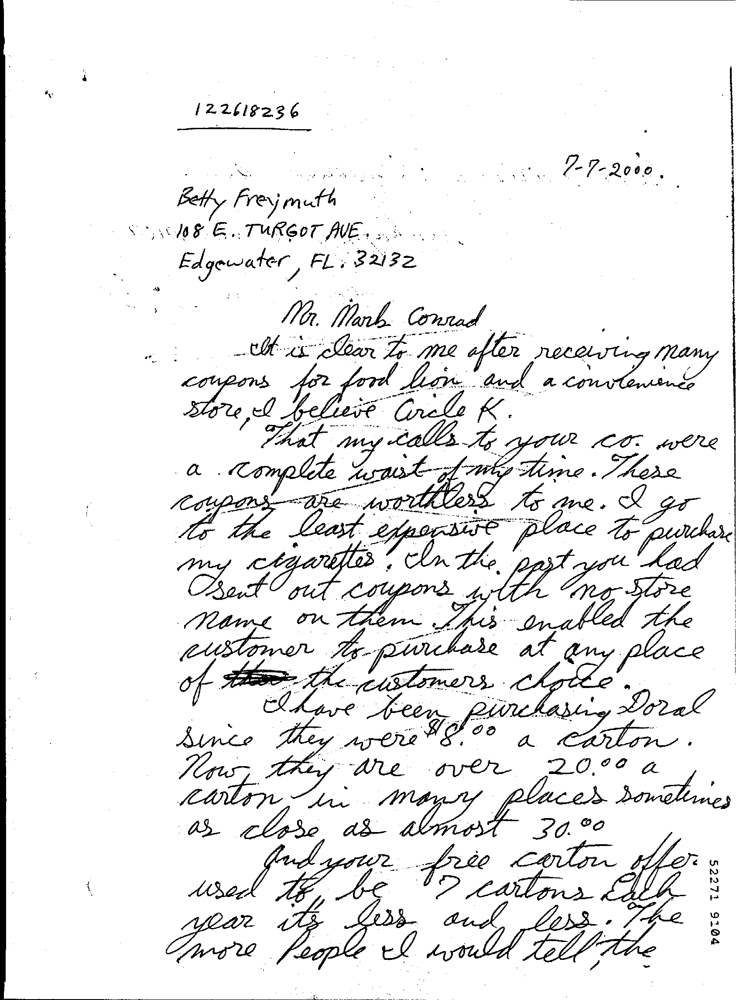 122618236
7-7-2000.
Betty Freymuth
108 E. TURGOT AVE.
Edgewater, FL. 32132
Mr. Mark Conrad
It is clear to me after receiving many
coupons for food lion and a convienience
store, I believe Circle K.
That my calls to your co. were
a complete waist of my time. These
coupons are worthless to me. I go
to the least expensive place to purchase
my cigarettes. In the past you had
sent out coupons with no store
name on them. This enabled the
customer to purchase at any place
of the customers choice.
I have been purchasing Doral
since they were $8.00 a carton.
Now, they are over 20.00 a
carton in many places sometimes
as close as almost 30.00
And your free carton offer
used to be 7 cartons Each
year its less and less. The
more People I would tell, the
52271 9104